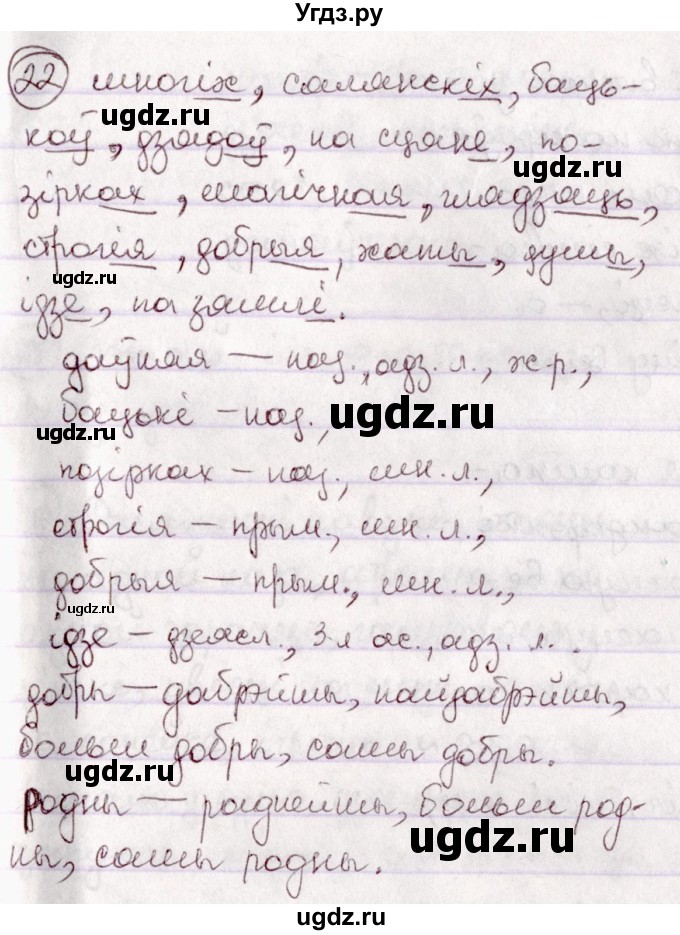 Угдз.ру
22 многіх, саманскіх, баць-
ugdz.ru
коў, дзядоў, на сцяне, по-
ugdz.ru
зірках, магічная, гладзяць,
строгія, добрыя, хаты, душы,
ugdz.ru
ідзе, па зямлі.
даўкая — наз., адз. л., ж.р.,
бацькі – наз.,
ugdz.ru
позірках – наз., мн. л.,
строгія – прым., мн. л.,
добрыя – прым., мн. л.,
ugdz.ru
ідзе – дзеясл., 3-я ас., адз. л.
добры — дабрэйшы, найдабрэйшы,
больш добры, самы добры.
ugdz.ru
Родны — раднейшы, больш род-
ugdz.ru
ны, самы родны.
ugdz.ru